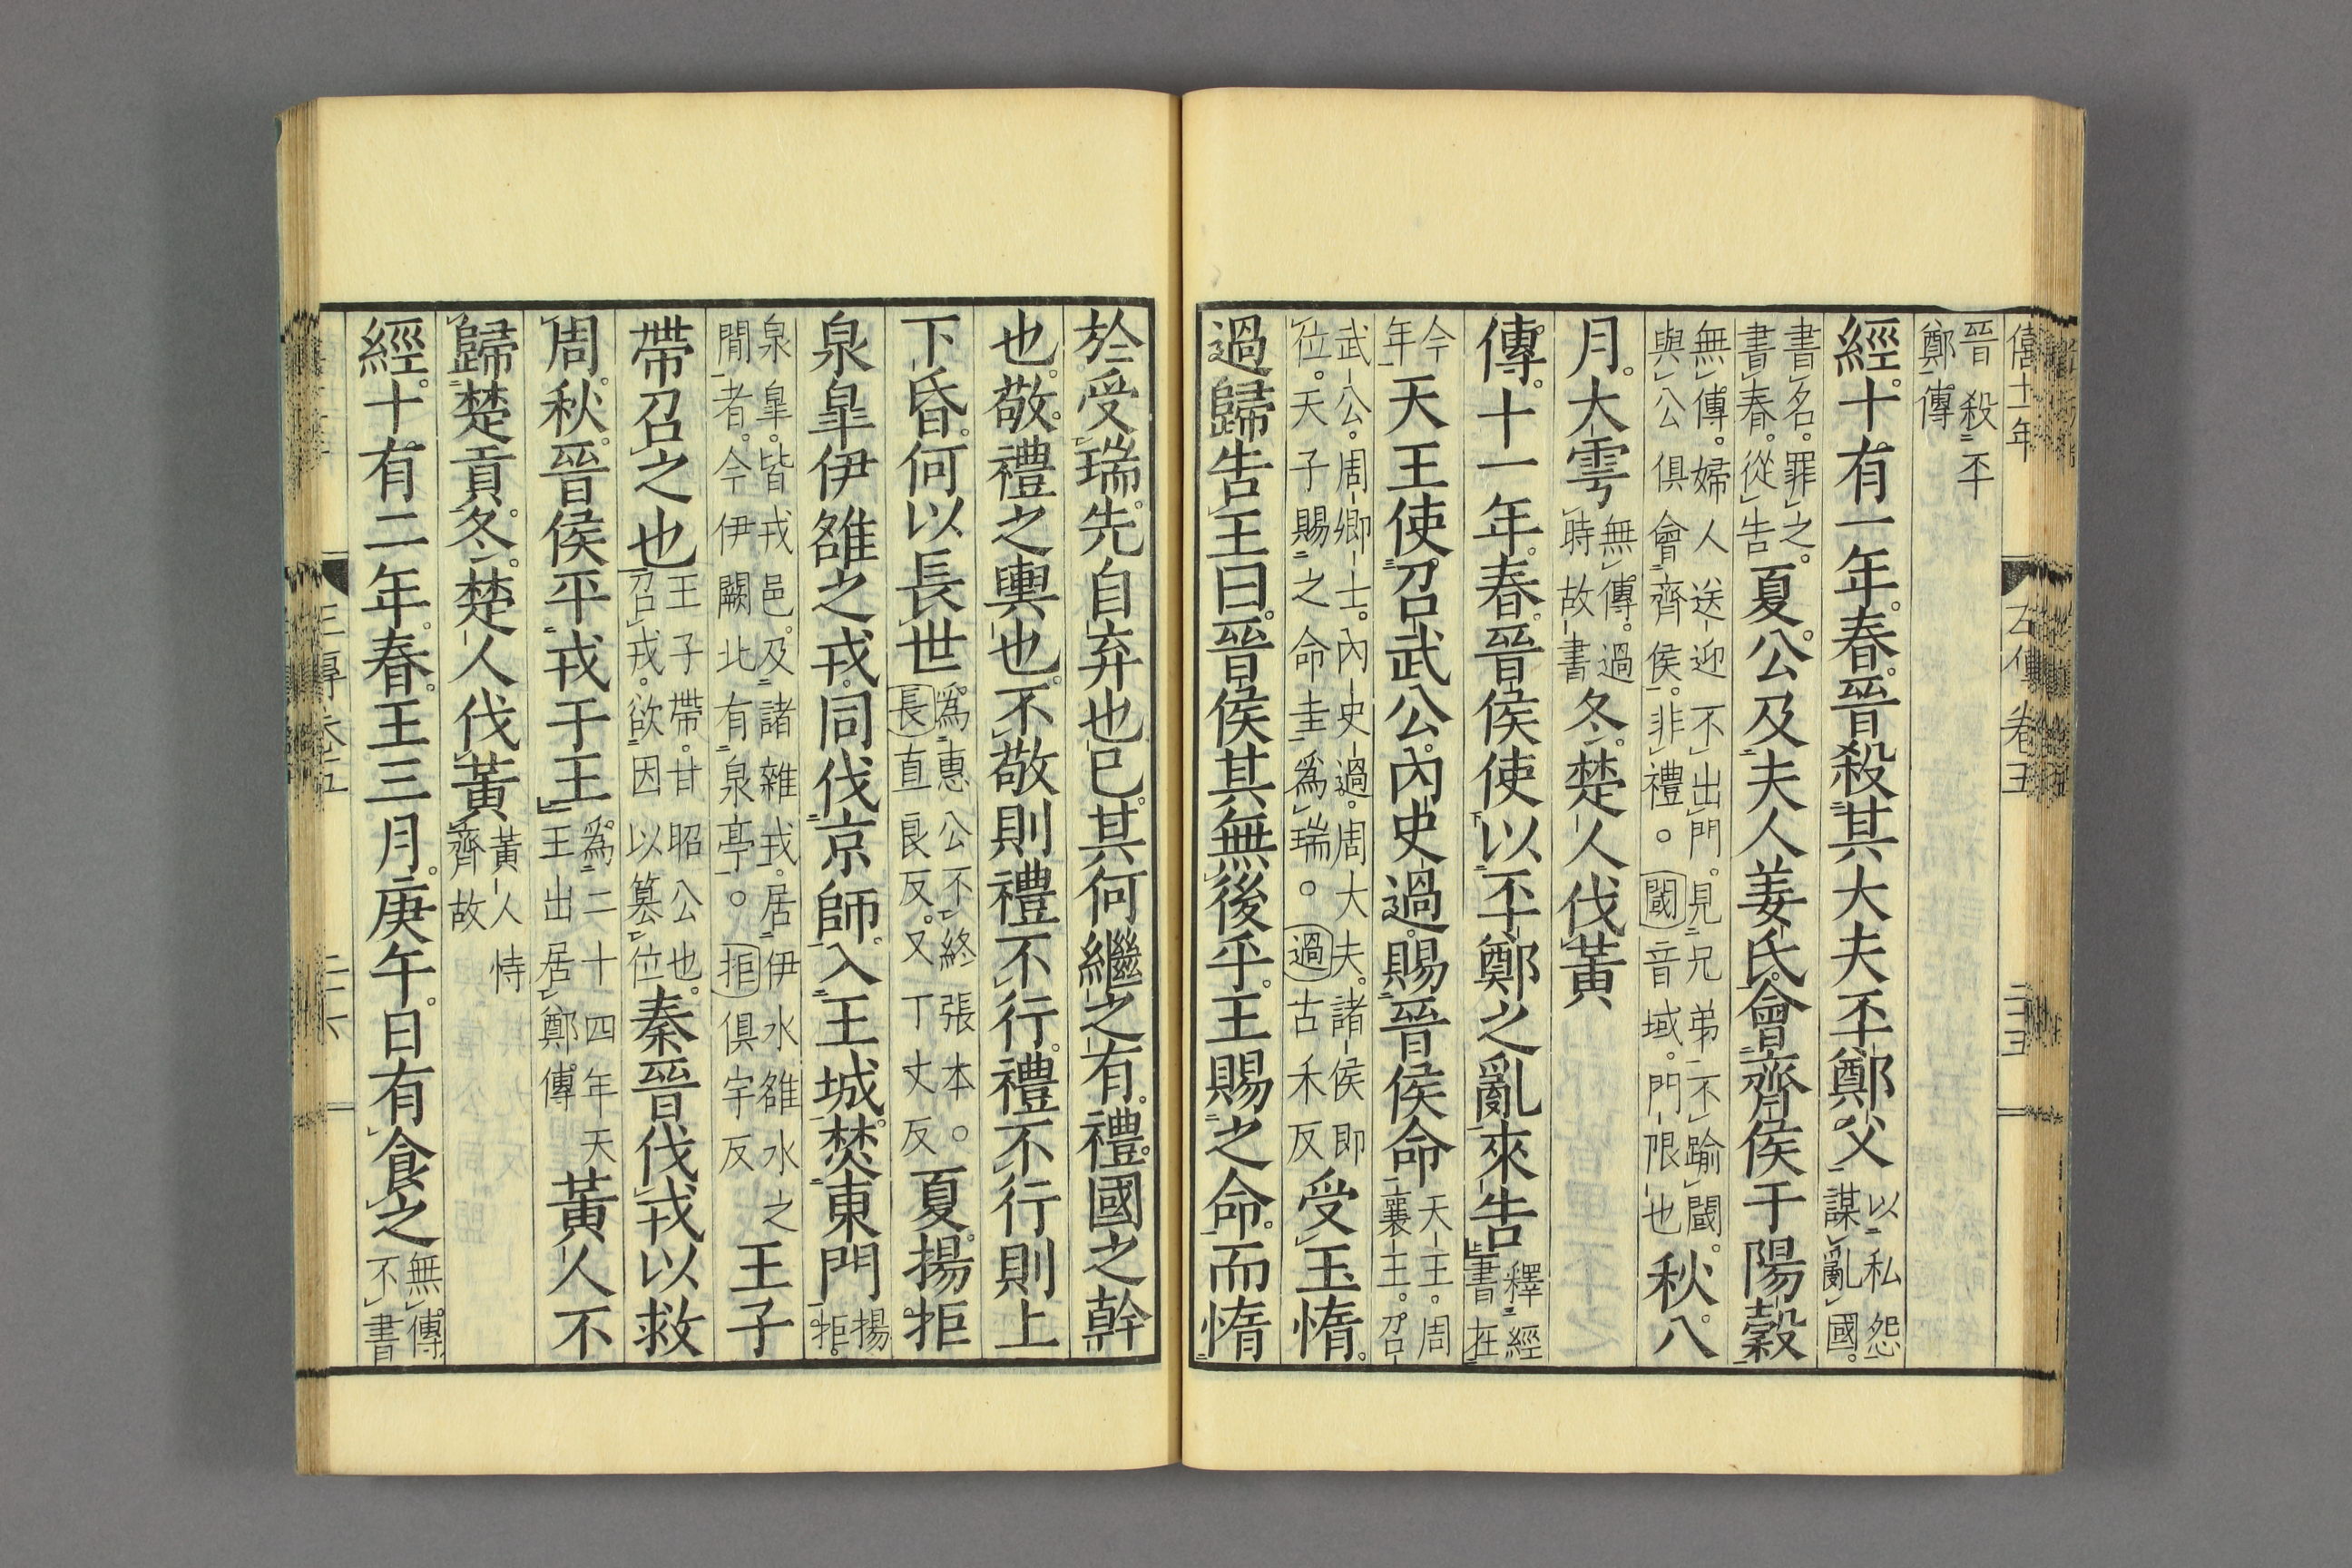 僖十一年
左傳卷五
二十五
晉殺丕
鄭傳
經。十有一年。春。晉殺其大夫丕鄭父以私怨謀亂國。
書名。罪之。書春。從告夏。公及夫人姜氏。會齊侯于陽穀
無傳。婦人送迎不出門。見兄弟不踰閾。與公俱會齊侯。非禮。○閾音域。門限也秋。八
月。大雩無傳。過時故書冬。楚人伐黃
傳。十一年。春。晉侯使以丕鄭之亂來告釋經書在
今年天王使召武公。內史過。賜晉侯命天王。周襄王。召
武公。周卿士。內史過。周大夫。諸侯即位。天子賜之命圭爲瑞。○過古禾反受玉惰。
過歸告王曰。晉侯其無後乎。王賜之命。而惰
於受瑞。先自弃也已。其何繼之有。禮。國之幹
也。敬。禮之輿也。不敬則禮不行。禮不行則上
下昏。何以長世爲惠公不終張本。○長直良反。又丁丈反夏。揚拒
泉皐伊雒之戎。同伐京師。入王城。焚東門揚拒。
泉皐。皆戎邑。及諸雜戎。居伊水雒水之閒者。今伊闕北有泉亭。○拒俱宇反王子
帶召之也王子帶。甘昭公也。召戎。欲因以簒位秦晉伐戎以救
周。秋。晉侯平戎于王爲二十四年天王出居鄭傳黃人不
歸楚貢。冬。楚人伐黃黃人恃齊故
經。十有二年。春。王三月。庚午。日有食之無傳。不書
卷五